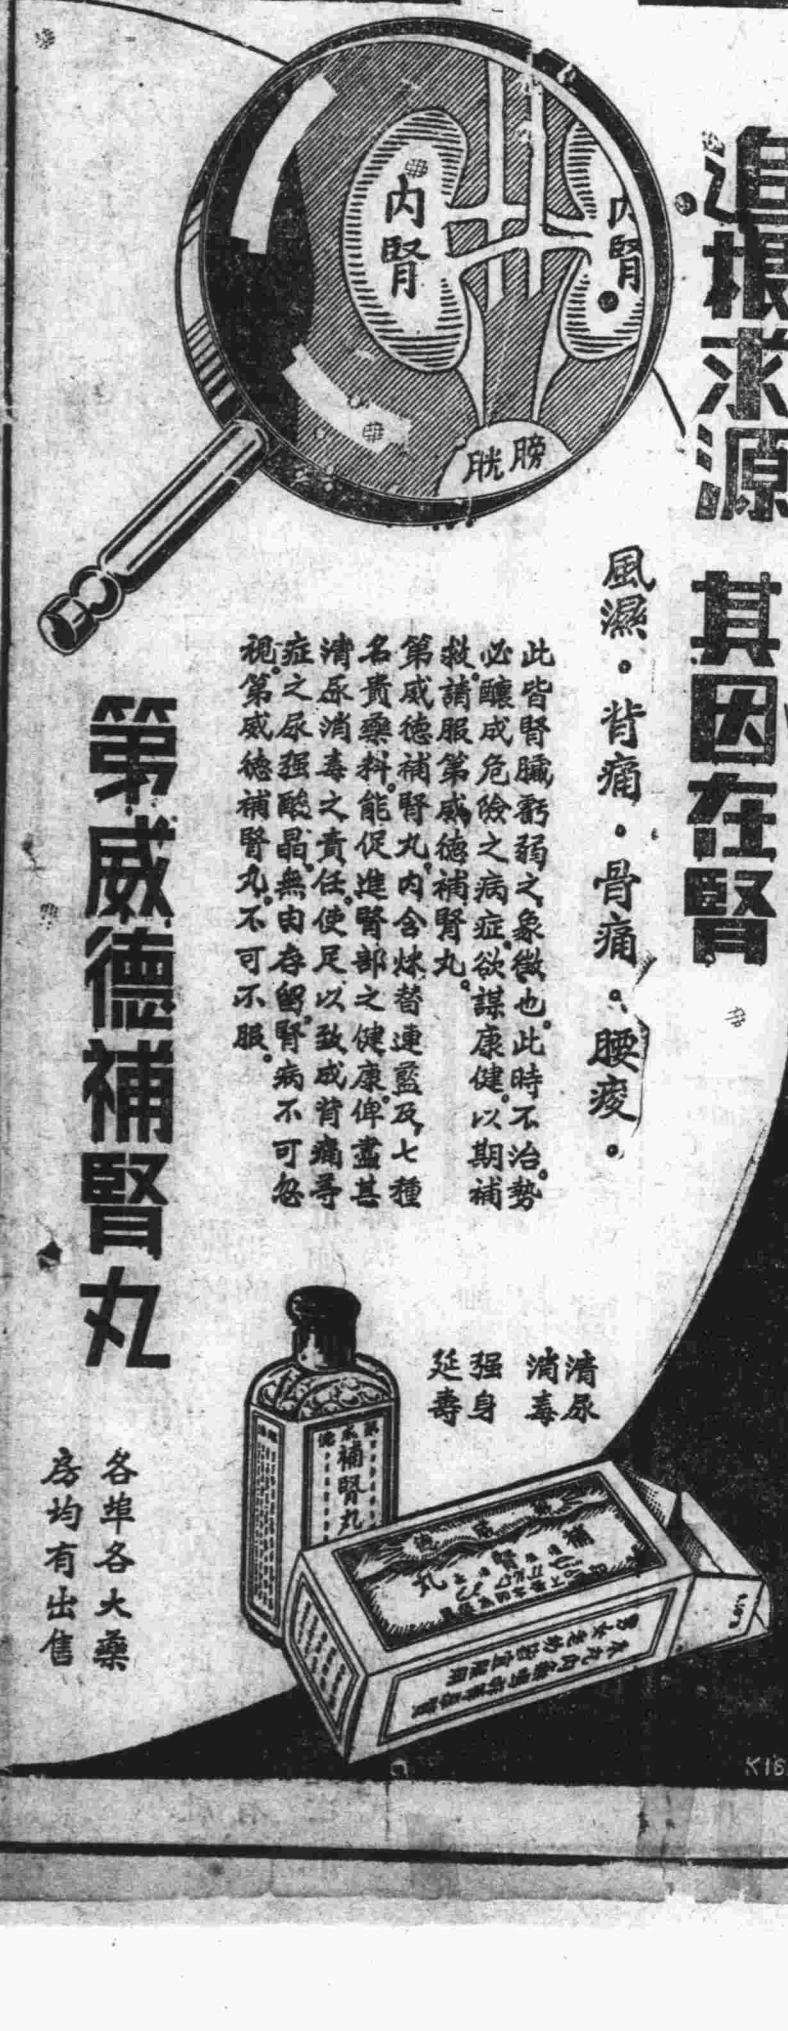 追根求源 其因在腎
風濕。背痛。骨痛。腰痠。
此皆腎臟虧弱之象徵也。此時不治。勢
必釀成危險之病症。欲謀康健。以期補
救。請服第威德補腎丸。
第威德補腎丸。內含烌替連藍及七種
名貴藥料。能促進腎部之健康。俾盡其
清尿消毒之責任。使足以致成背痛等
症之尿强酸晶。無由存留。腎病不可忽
視。第威德補腎丸。不可不服。
第威德補腎丸
內腎
內腎
膀胱
清尿
消毒
强身
延壽
補腎丸
各埠各大藥
房均有出售
K16